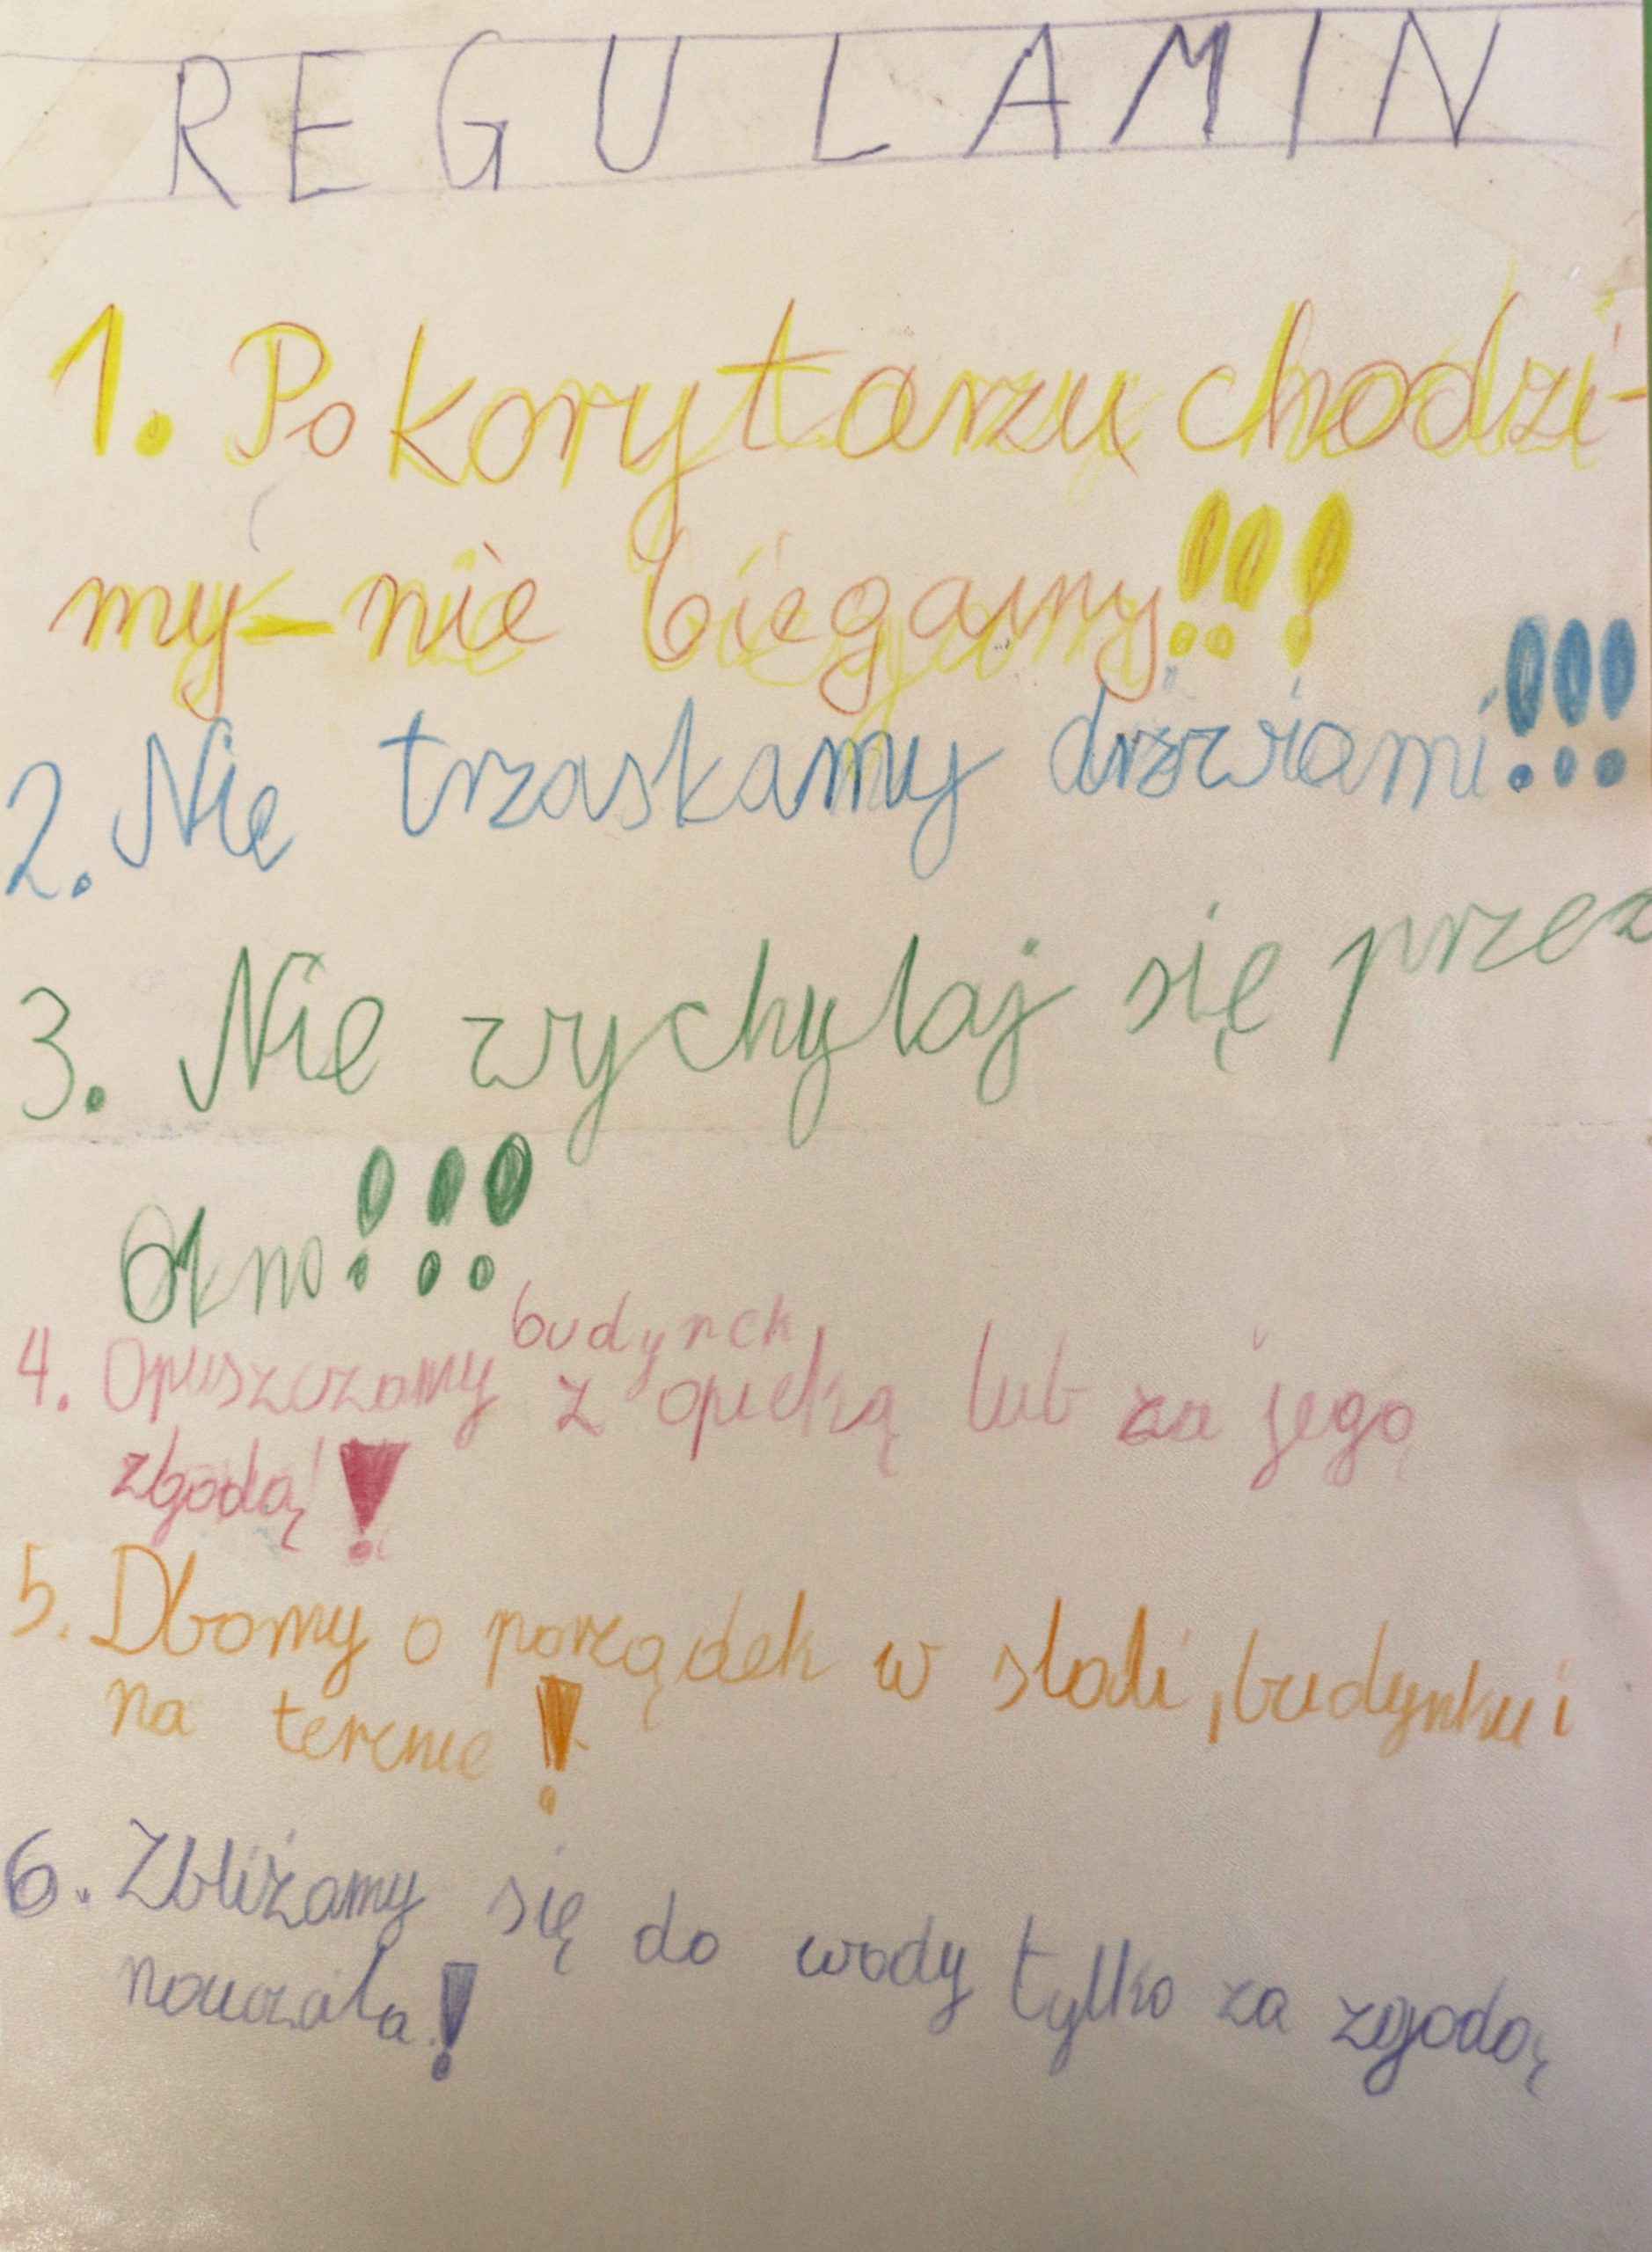 REGULAMIN
1. Po korytarzu chodzi-
my-nie biegamy!!!
2. Nie trzaskamy drzwiami!!!
3. Nie wychylaj się przez
okno!!!
4. Opuszczamy budynek z opieką lub za jego
zgodą!
5. Dbamy o porządek w stodi, budynku i
na terenie!
6. Zbliżamy się do wody tylko za zgodą